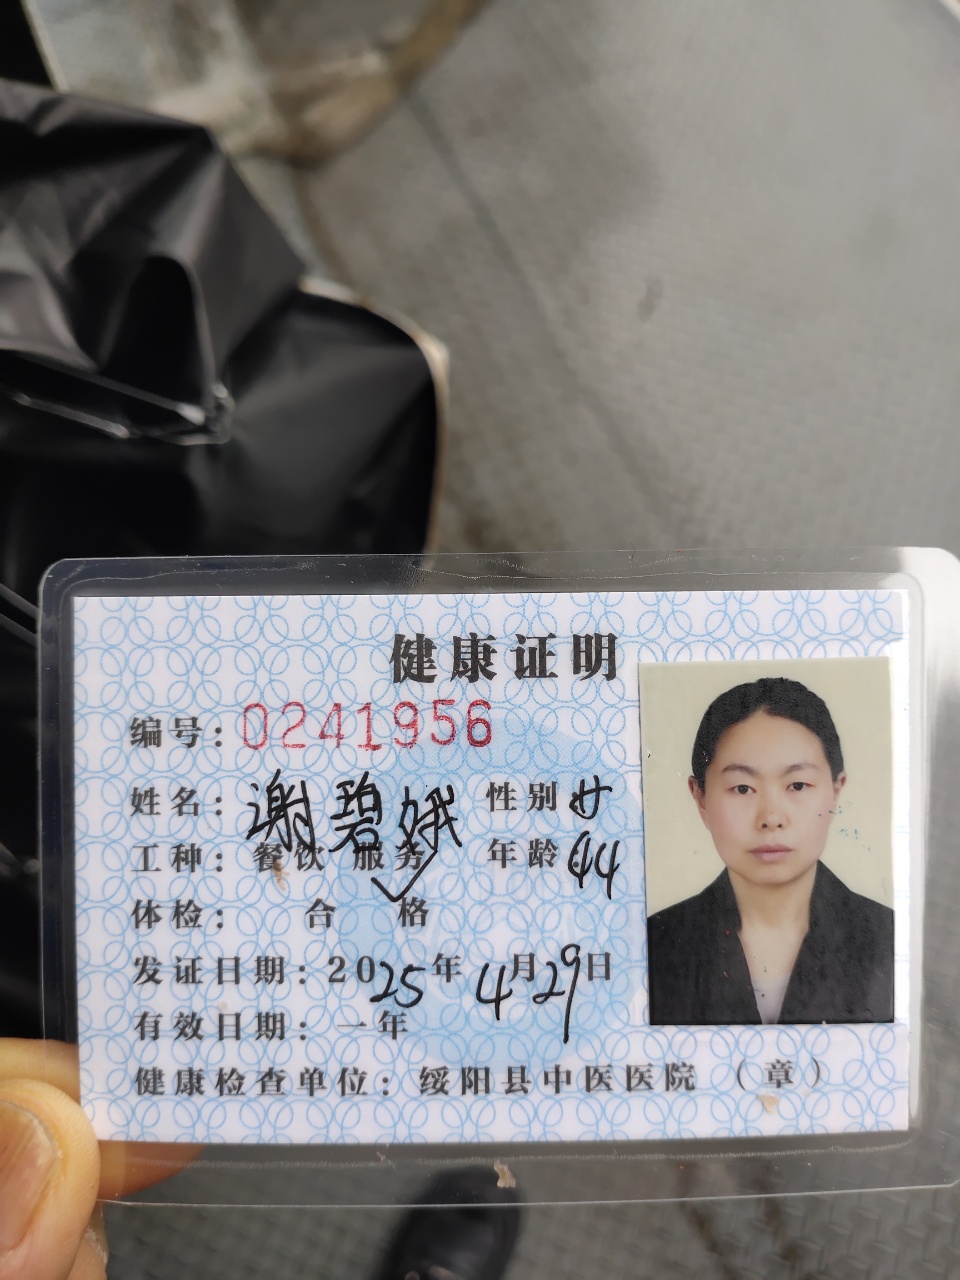 健康证明
编号：0241956
姓名：谢碧娥 性别 女
工种：餐饮 服务 年龄 44
体检： 合 格
发证日期：2025年4月29日
有效日期：一年
健康检查单位：绥阳县中医医院（章）